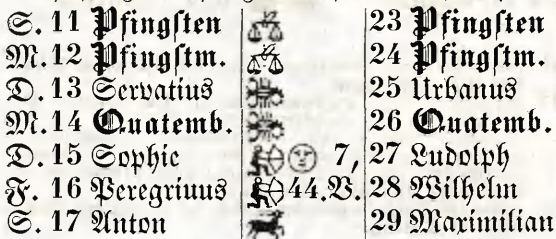 S. 11 Pfingſten 23 Pfingſten
M. 12 Pfingſtm. 24 Pfingſtm.
D. 13 Servatius 25 Urbanus
M. 14 Quatemb. 26 Quatemb.
D. 15 Sophie 7, 27 Ludolph
F. 16 Peregrinus 44. V. 28 Wilhelm
S. 17 Anton 29 Maximilian